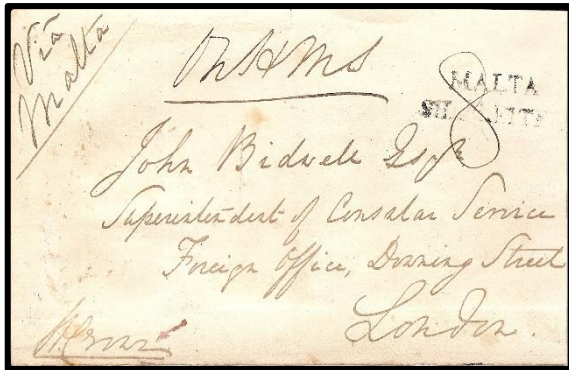 Via
Malta
On HMS
MALTA
John Bidwell Esqr
Superintendent of Consular Service
Foreign Office, Downing Street
London.